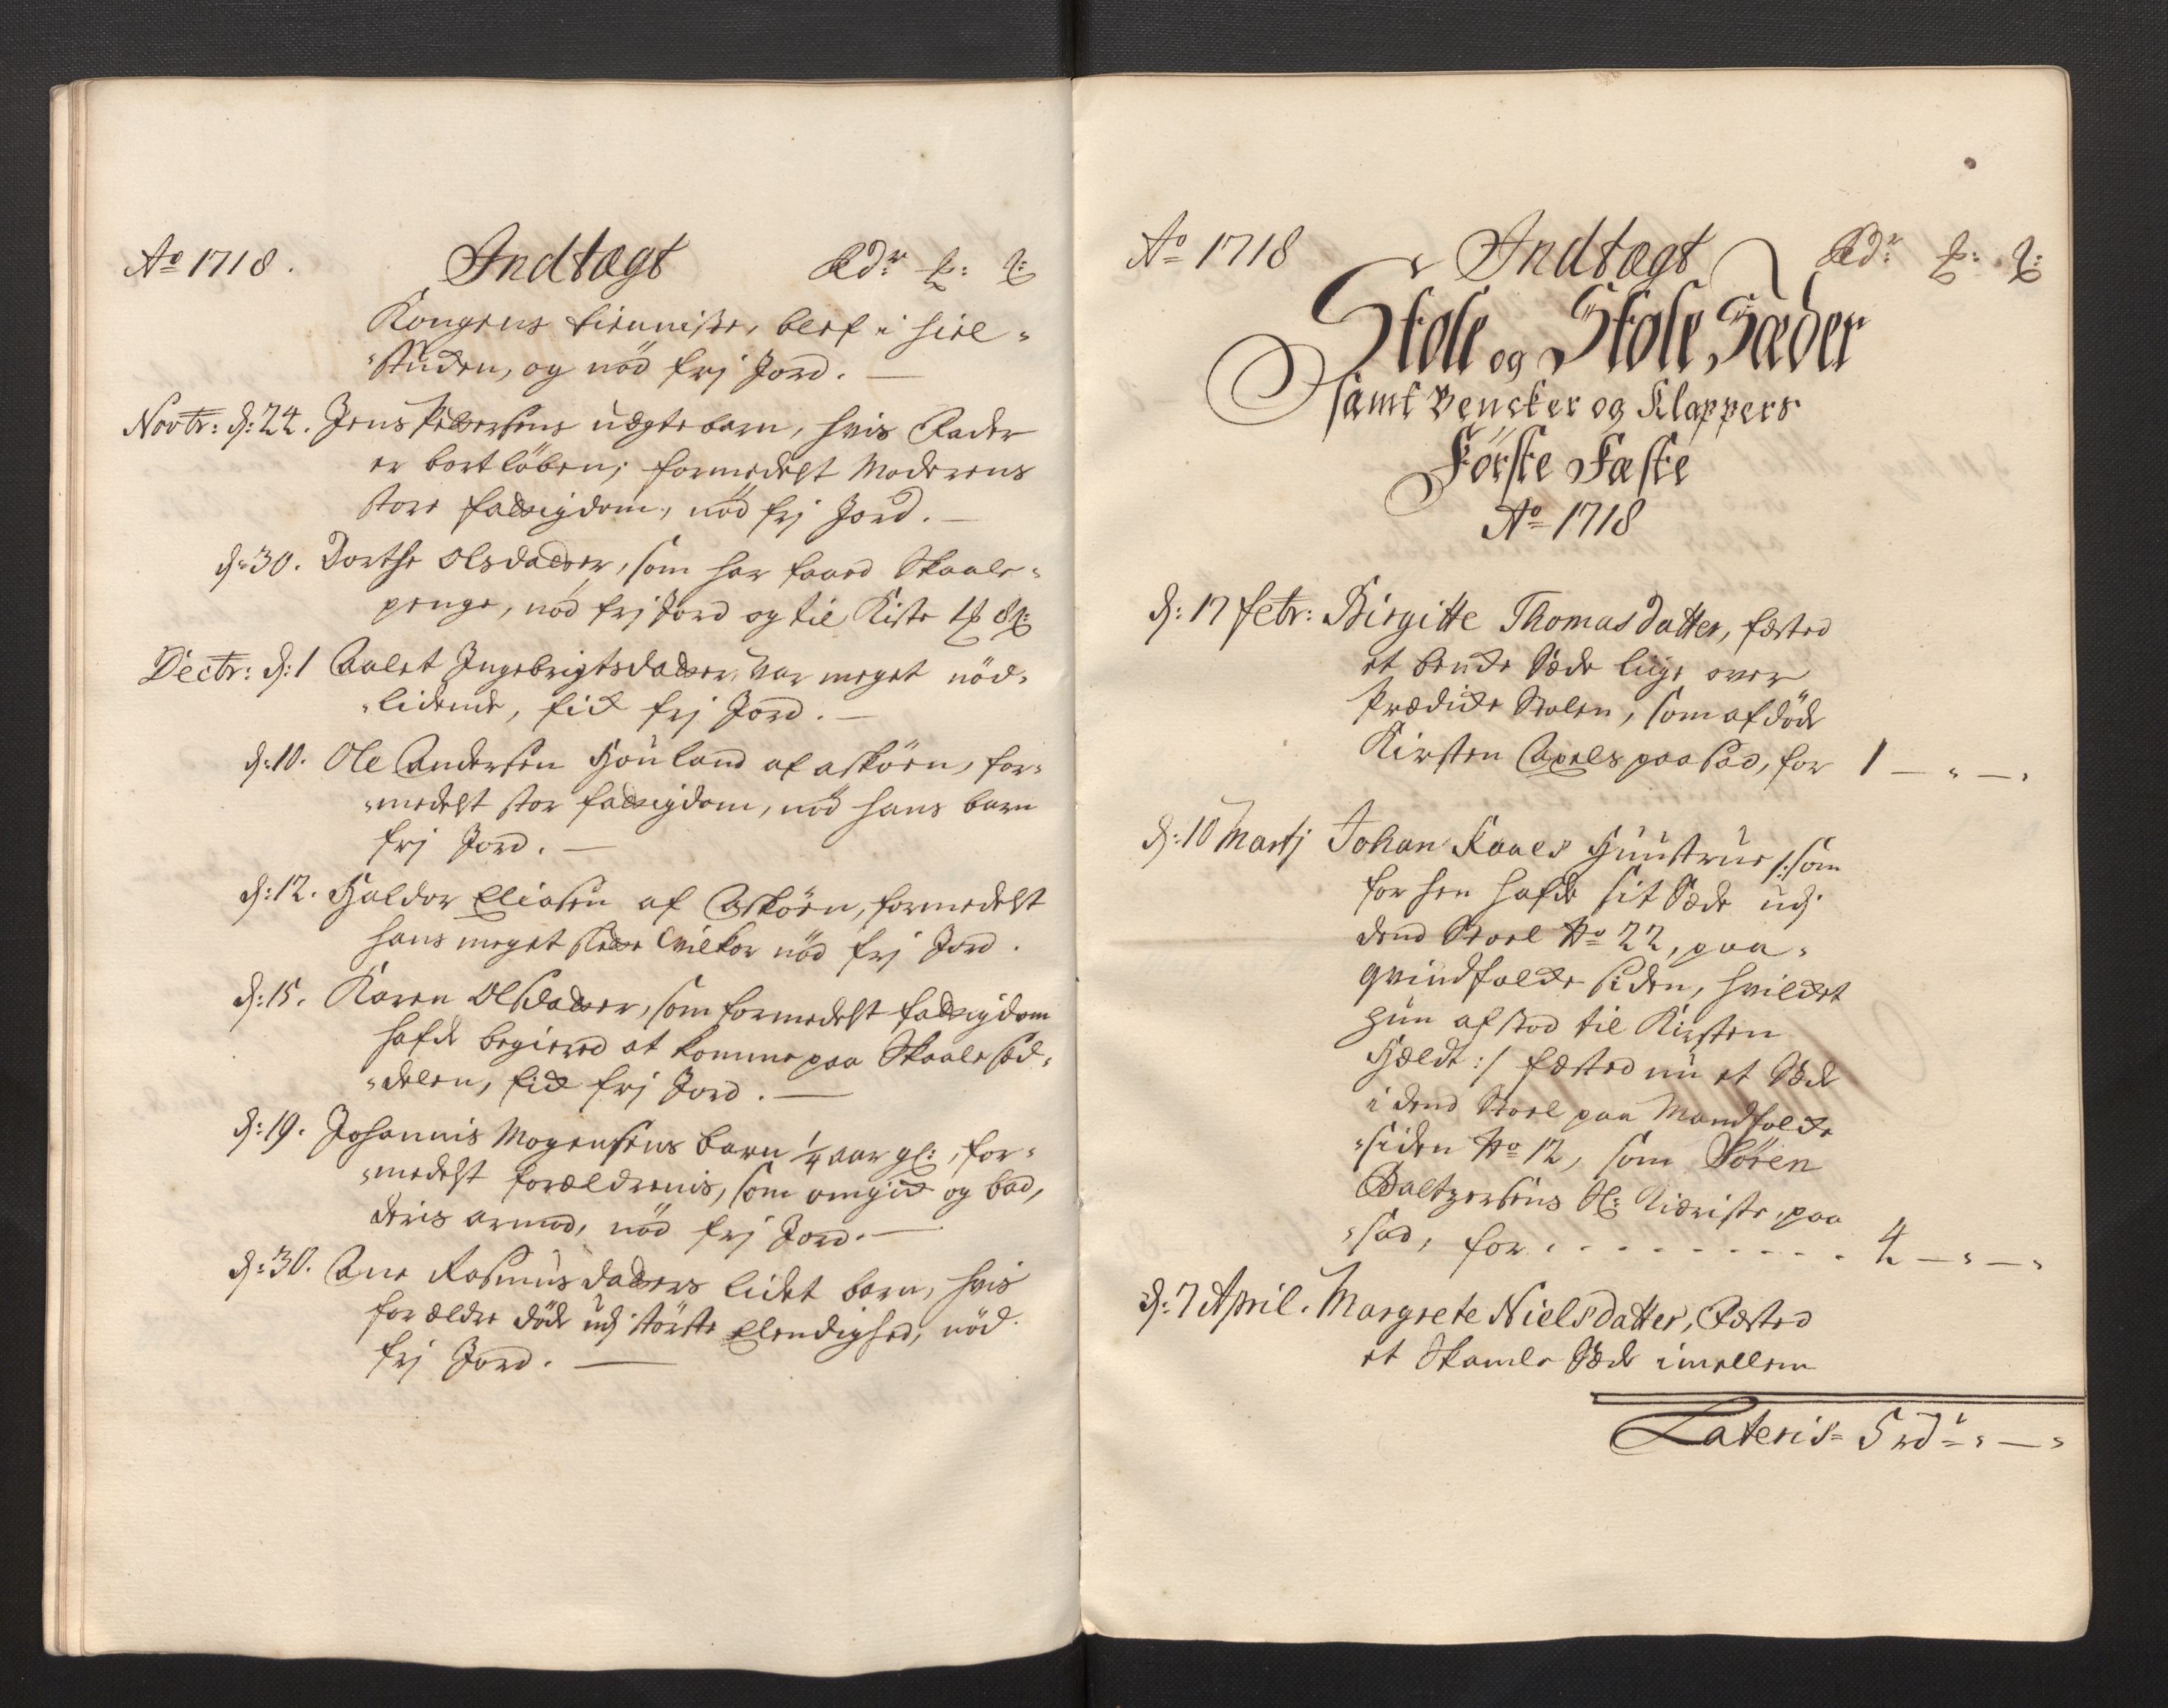 Ao 1718. Indtægt Rdr ß: ß:
Kongens tienniste, blef i hiel-
"studen, og nöd frj Jord. —
Novbr: d: 24. Jens Pedersens uægte barn, hvis Fader
er bortlöben, formedelst Moderens
store fattigdom, nöd frj Jord. —
d: 30. Dorthe Olsdatter, som har faaed Skaale-
penge, nöd frj Jord og til Kiste 1 8ß:
Decbr: d: 1 Aalet Ingebrigtsdatter, var meget nöd-
"lidende, fick frj Jord. —
d: 10. Ole Andersen Houland af Asköen, for-
"medelst stor fattigdom, nöd hans barn
frj Jord. —
d: 12. Haldor Eliasen af Asköen, formedelst
hans meget slette Vilkor nöd frj Jord.
d: 15. Karen Olsdatter, som formedelst fattigdom
hafde begiered at komme paa Skaale sed-
"delen, fick frj Jord. —
d: 19. Johannis Mogensens barn 1/4 aar gl:, for-
"medelst forældrenis, som omgick og bad,
deris armod, nöd frj Jord. —
d: 30. Ane Rasmusdatters lidet barn, hvis
forældre döde udj störste Elendighed, nöd
frj Jord. —
Ao 1718 Indtægt Rdr: ß: ß:
Stole og Stole Sæder
samt Bencker og Klappers
Förste Fæste
Ao 1718
d: 17 febr: Birgitte Thomasdatter, fæsted
et bencke Sæde liige over
Prædicke Stolen, som afdöde
Kirsten Axels paa sad, for 1 — " — "
d: 10 Martj Johan Kaaes Huustrue /: som
for hen hafde sit Sæde udj
dend Stoel No 22, paa-
qvindfolcke siden, hvilcket
hun afstod til Kirsten
Hældt :/ fæsted nu et Sæde
i dend Stoel paa Mandfolcke
"siden No 12, som Sören
Baltzersens Sl: Kieriste, paa
"sad, for . - - - - - - - - 4 — " — "
d: 7 April. Margrete Nielsdatter, Fæsted
et Skamle Sæde imellem
Lateris 5 rdr " — "